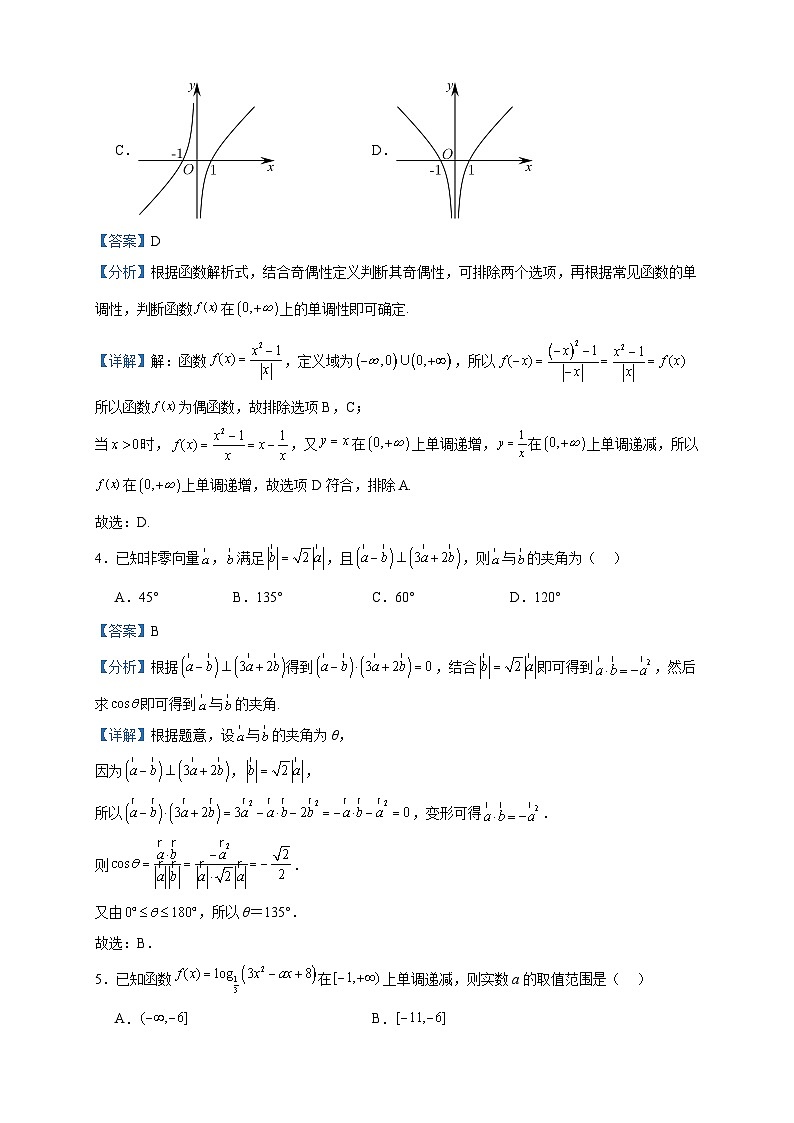 C.
y
-1
O
1
x
D.
y
O
-1
1
x
【答案】D
【分析】根据函数解析式，结合奇偶性定义判断其奇偶性，可排除两个选项，再根据常见函数的单
调性，判断函数 f(x) 在 (0,+∞) 上的单调性即可确定.
【详解】解：函数 f(x) = (x²−1)/|x|，定义域为 (−∞,0)∪(0,+∞)，所以 f(−x) = ((−x)²−1)/|−x| = (x²−1)/|x| = f(x)
所以函数 f(x) 为偶函数，故排除选项 B，C；
当 x>0 时，f(x) = (x²−1)/x = x − 1/x，又 y = x 在 (0,+∞) 上单调递增，y = 1/x 在 (0,+∞) 上单调递减，所以
f(x) 在 (0,+∞) 上单调递增，故选项 D 符合，排除 A.
故选：D.
4．已知非零向量 a，b 满足 |b| = √2|a|，且 (a−b)⊥(3a+2b)，则 a 与 b 的夹角为（ ）
A．45° B．135° C．60° D．120°
【答案】B
【分析】根据 (a−b)⊥(3a+2b) 得到 (a−b)·(3a+2b) = 0，结合 |b| = √2|a| 即可得到 a·b = −a²，然后
求 cosθ 即可得到 a 与 b 的夹角.
【详解】根据题意，设 a 与 b 的夹角为 θ，
因为 (a−b)⊥(3a+2b)，|b| = √2|a|，
所以 (a−b)·(3a+2b) = 3a² − a·b − 2b² = −a·b − a² = 0，变形可得 a·b = −a²．
则 cosθ = a·b/(|a||b|) = −a²/(|a|·√2|a|) = −√2/2．
又由 0° ≤ θ ≤ 180°，所以 θ＝135°．
故选：B．
5．已知函数 f(x) = log_{1/3}(3x² − ax + 8) 在 [−1,+∞) 上单调递减，则实数 a 的取值范围是（ ）
A．(−∞,−6] B．[−11,−6]